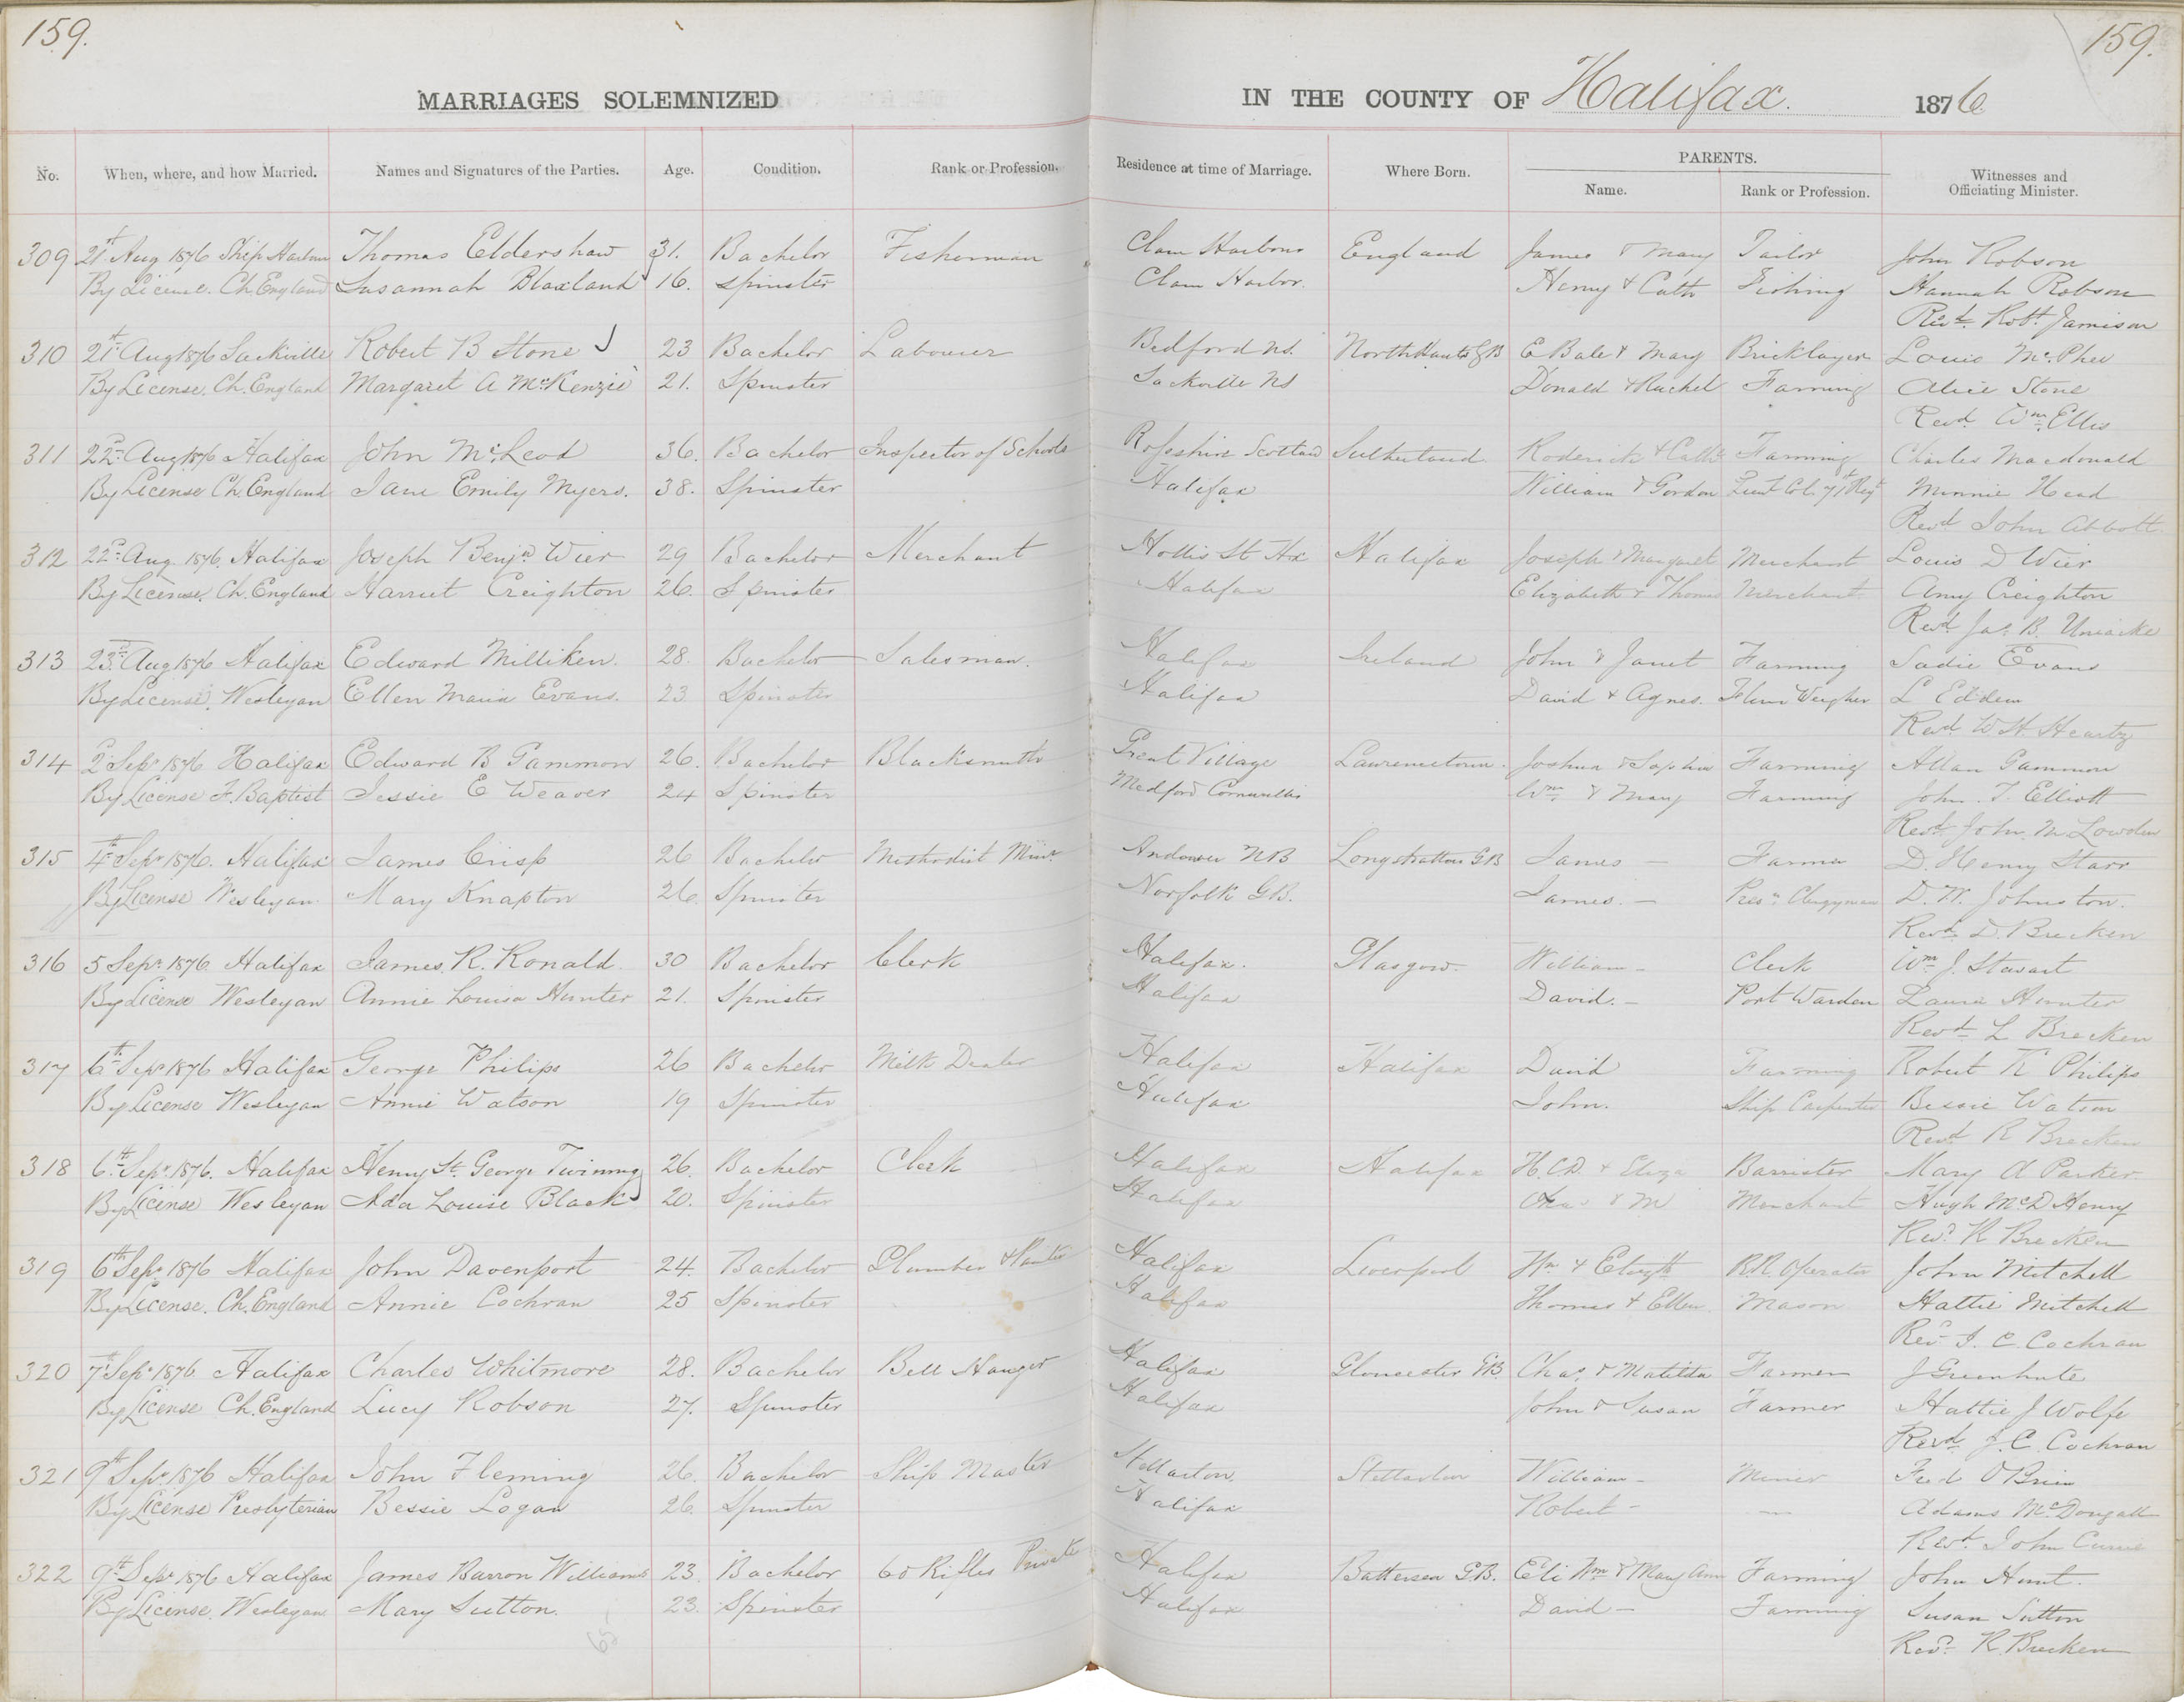 159.
159.
MARRIAGES SOLEMNIZED IN THE COUNTY OF Halifax. 1876
No. When, where, and how Married. Names and Signatures of the Parties. Age. Condition. Rank or Profession. Residence at time of Marriage. Where Born. PARENTS. Name. Rank or Profession. Witnesses and Officiating Minister.
309 21st Aug 1876 Ship Harbour Thomas Eldershaw 31. Bachelor Fisherman Clam Harbour England James & Mary Tailor John Robson
By License. Ch. England Susannah Blaxland 16. Spinster Clam Harbor. Henry & Cath Fishing Hannah Robson
Revd. Robt. Jamison
310 21st Aug 1876 Sackville Robert B Stone 23 Bachelor Labourer Bedford NS. North Hants GB E Bale & Mary Bricklayer Louis McPhee
By License. Ch. England Margaret A McKenzie 21. Spinster Sackville NS Donald & Rachel Farming Alice Stone
Revd. Wm. Ellis
311 22nd Aug 1876 Halifax John McLeod 36. Bachelor Inspector of Schools Rosshire Scotland Sutherland Roderick & Cath Farming Charles Macdonald
By License Ch. England Jane Emily Myers. 38. Spinster Halifax William & Gordon Lieut Col. 71st Regt Minnie Head
Revd John Abbott
312 22nd Aug. 1876, Halifax Joseph Benjn Wier 29 Bachelor Merchant Hollis St Hx Halifax Joseph & Margaret Merchant Louis D Wier
By License. Ch. England Harriet Creighton 26. Spinster Halifax Elizabeth & Thomas Merchant Amy Creighton
Revd. Jas. B. Uniacke
313 23rd Aug 1876 Halifax Edward Milliken. 28. Bachelor Salesman. Halifax Ireland John & Janet Farming Sadie Evans
By License, Wesleyan Ellen Maria Evans. 23 Spinster Halifax David & Agnes. Flour Weigher L Eddem
Revd W H Heartz
314 2nd Sepr 1876 Halifax Edward B Gammon 26. Bachelor Blacksmith Great Village Lawrencetown. Joshua & Sophia Farming Allan Gammon
By License F. Baptist Jessie E Weaver 24 Spinster Medford Cornwallis Wm. & Mary Farming John. T. Elliott
Revd. John. M Lowden
315 4th Sepr 1876. Halifax James Crisp 26 Bachelor Methodist Minr. Andover NB Longstratton GB James — Farmer D. Henry Starr
By License Wesleyan. Mary Knapton 26. Spinster Norfolk GB. James. — Presn. Clergyman D. W. Johnston.
Revd. D. Brecken
316 5 Sepr. 1876. Halifax James. R. Ronald. 30 Bachelor Clerk Halifax. Glasgow. William — Clerk Wm J. Stewart
By License Wesleyan Annie Louisa Hunter 21. Spinster Halifax David. — Port Warden Laura Hunter
Revd L Brecken
317 6th Sepr 1876 Halifax George Philips 26 Bachelor Milk Dealer Halifax Halifax David Farming Robert K Philips
By License Wesleyan Annie Watson 19 Spinster Halifax John. Ship Carpenter Bessie Watson
Revd R Brecken
318 6th Sepr. 1876. Halifax Henry St. George Twining 26. Bachelor Clerk Halifax Halifax H. C. D. & Eliza Barrister Mary A Parker.
By License Wesleyan Ada Louise Black 20. Spinster Halifax Chas & M Merchant Hugh McD Henry
Revd. R Brecken
319 6th Sepr. 1876 Halifax John Davenport 24. Bachelor Plumber Halifax Liverpool Wm & Elizth R.R. Operator John Mitchell
By License. Ch. England Annie Cochran 25 Spinster Halifax Thomas & Ellen. Mason Hattie Mitchell
Revd J. C. Cochran
320 7th Sepr 1876. Halifax Charles Whitmore 28. Bachelor Bell Hanger Halifax Gloucester GB. Chas. & Matilda Farmer
By License Ch. England Lucy Robson 27. Spinster Halifax John & Susan Farmer Hattie J Wolfe
Revd. J. C. Cochran
321 9th Sepr 1876 Halifax John Fleming 26. Bachelor Ship Master Stellarton. Stellarton William — Miner Fred O'Brien
By License Presbyterian Bessie Logan 26. Spinster Halifax Robert — — Adams McDougall
Revd. John Currie
322 9th Sepr 1876 Halifax James Barron Williams 23. Bachelor 60 Rifles Private Halifax Battersea GB. Eli Wm & Mary Ann Farming John Hunt.
By License. Wesleyan Mary Sutton. 23. Spinster Halifax David — Farming Susan Sutton
Revd. R. Brecken
65